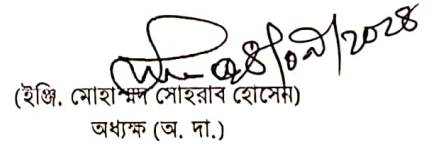 ০৪/০৯/২০২৪
(ইঞ্জি. মোহাম্মদ সোহরাব হোসেন)
অধ্যক্ষ (অ. দা.)